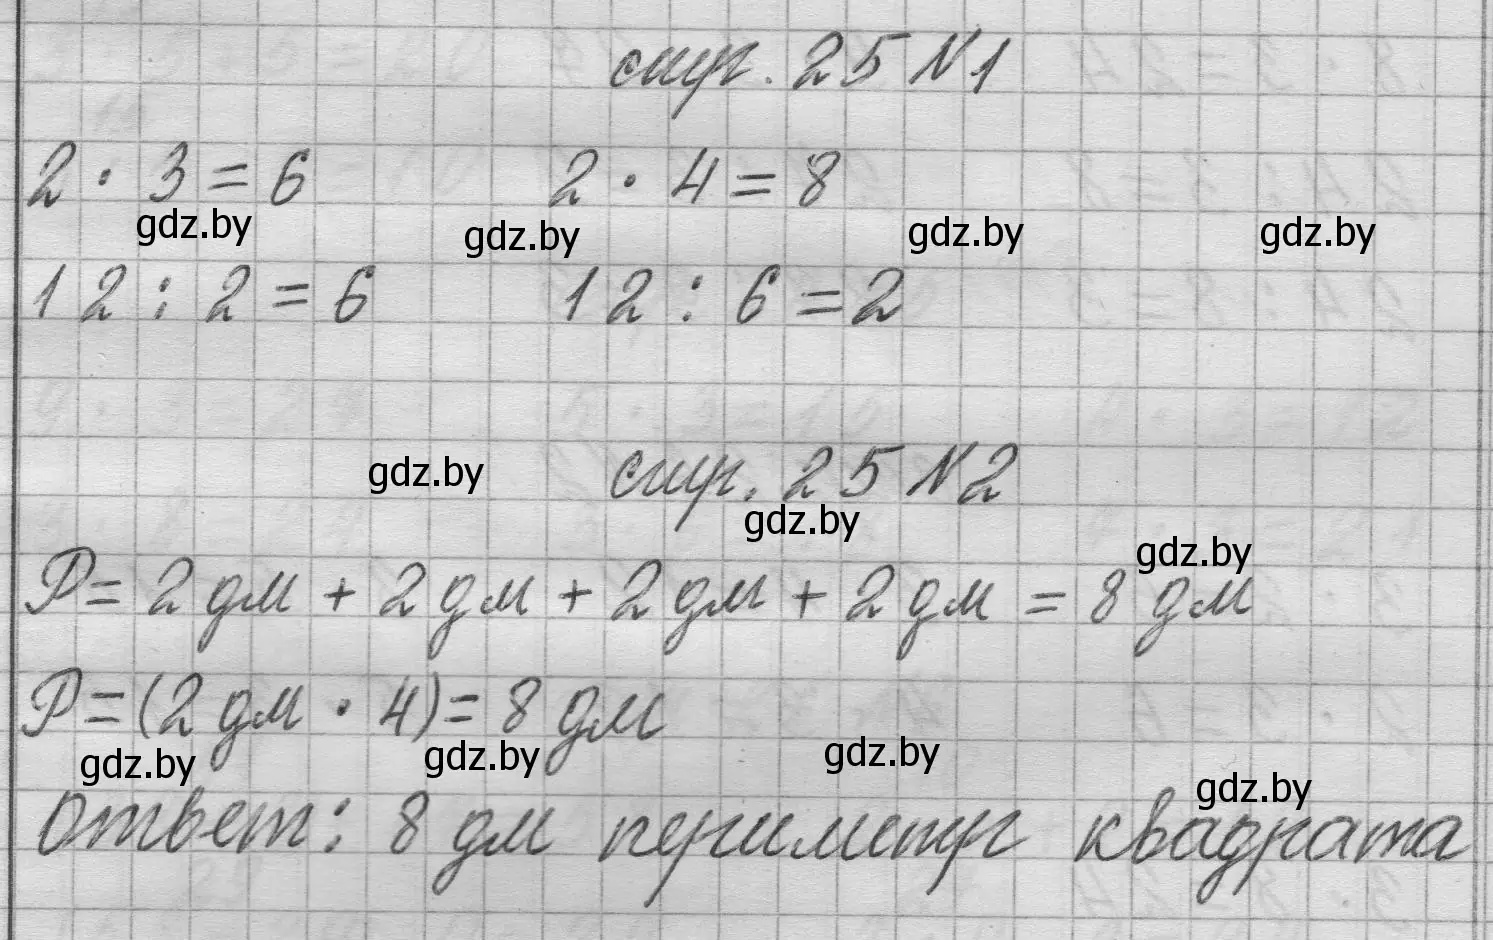 стр. 25 N1
2 · 3 = 6 2 · 4 = 8
gdz.by gdz.by gdz.by gdz.by
12 : 2 = 6 12 : 6 = 2
gdz.by стр. 25 N2
gdz.by
gdz.by
P = 2 дм + 2 дм + 2 дм + 2 дм = 8 дм
P = (2 дм · 4) = 8 дм
gdz.by gdz.by gdz.by gdz.by
Ответ: 8 дм периметр квадрата